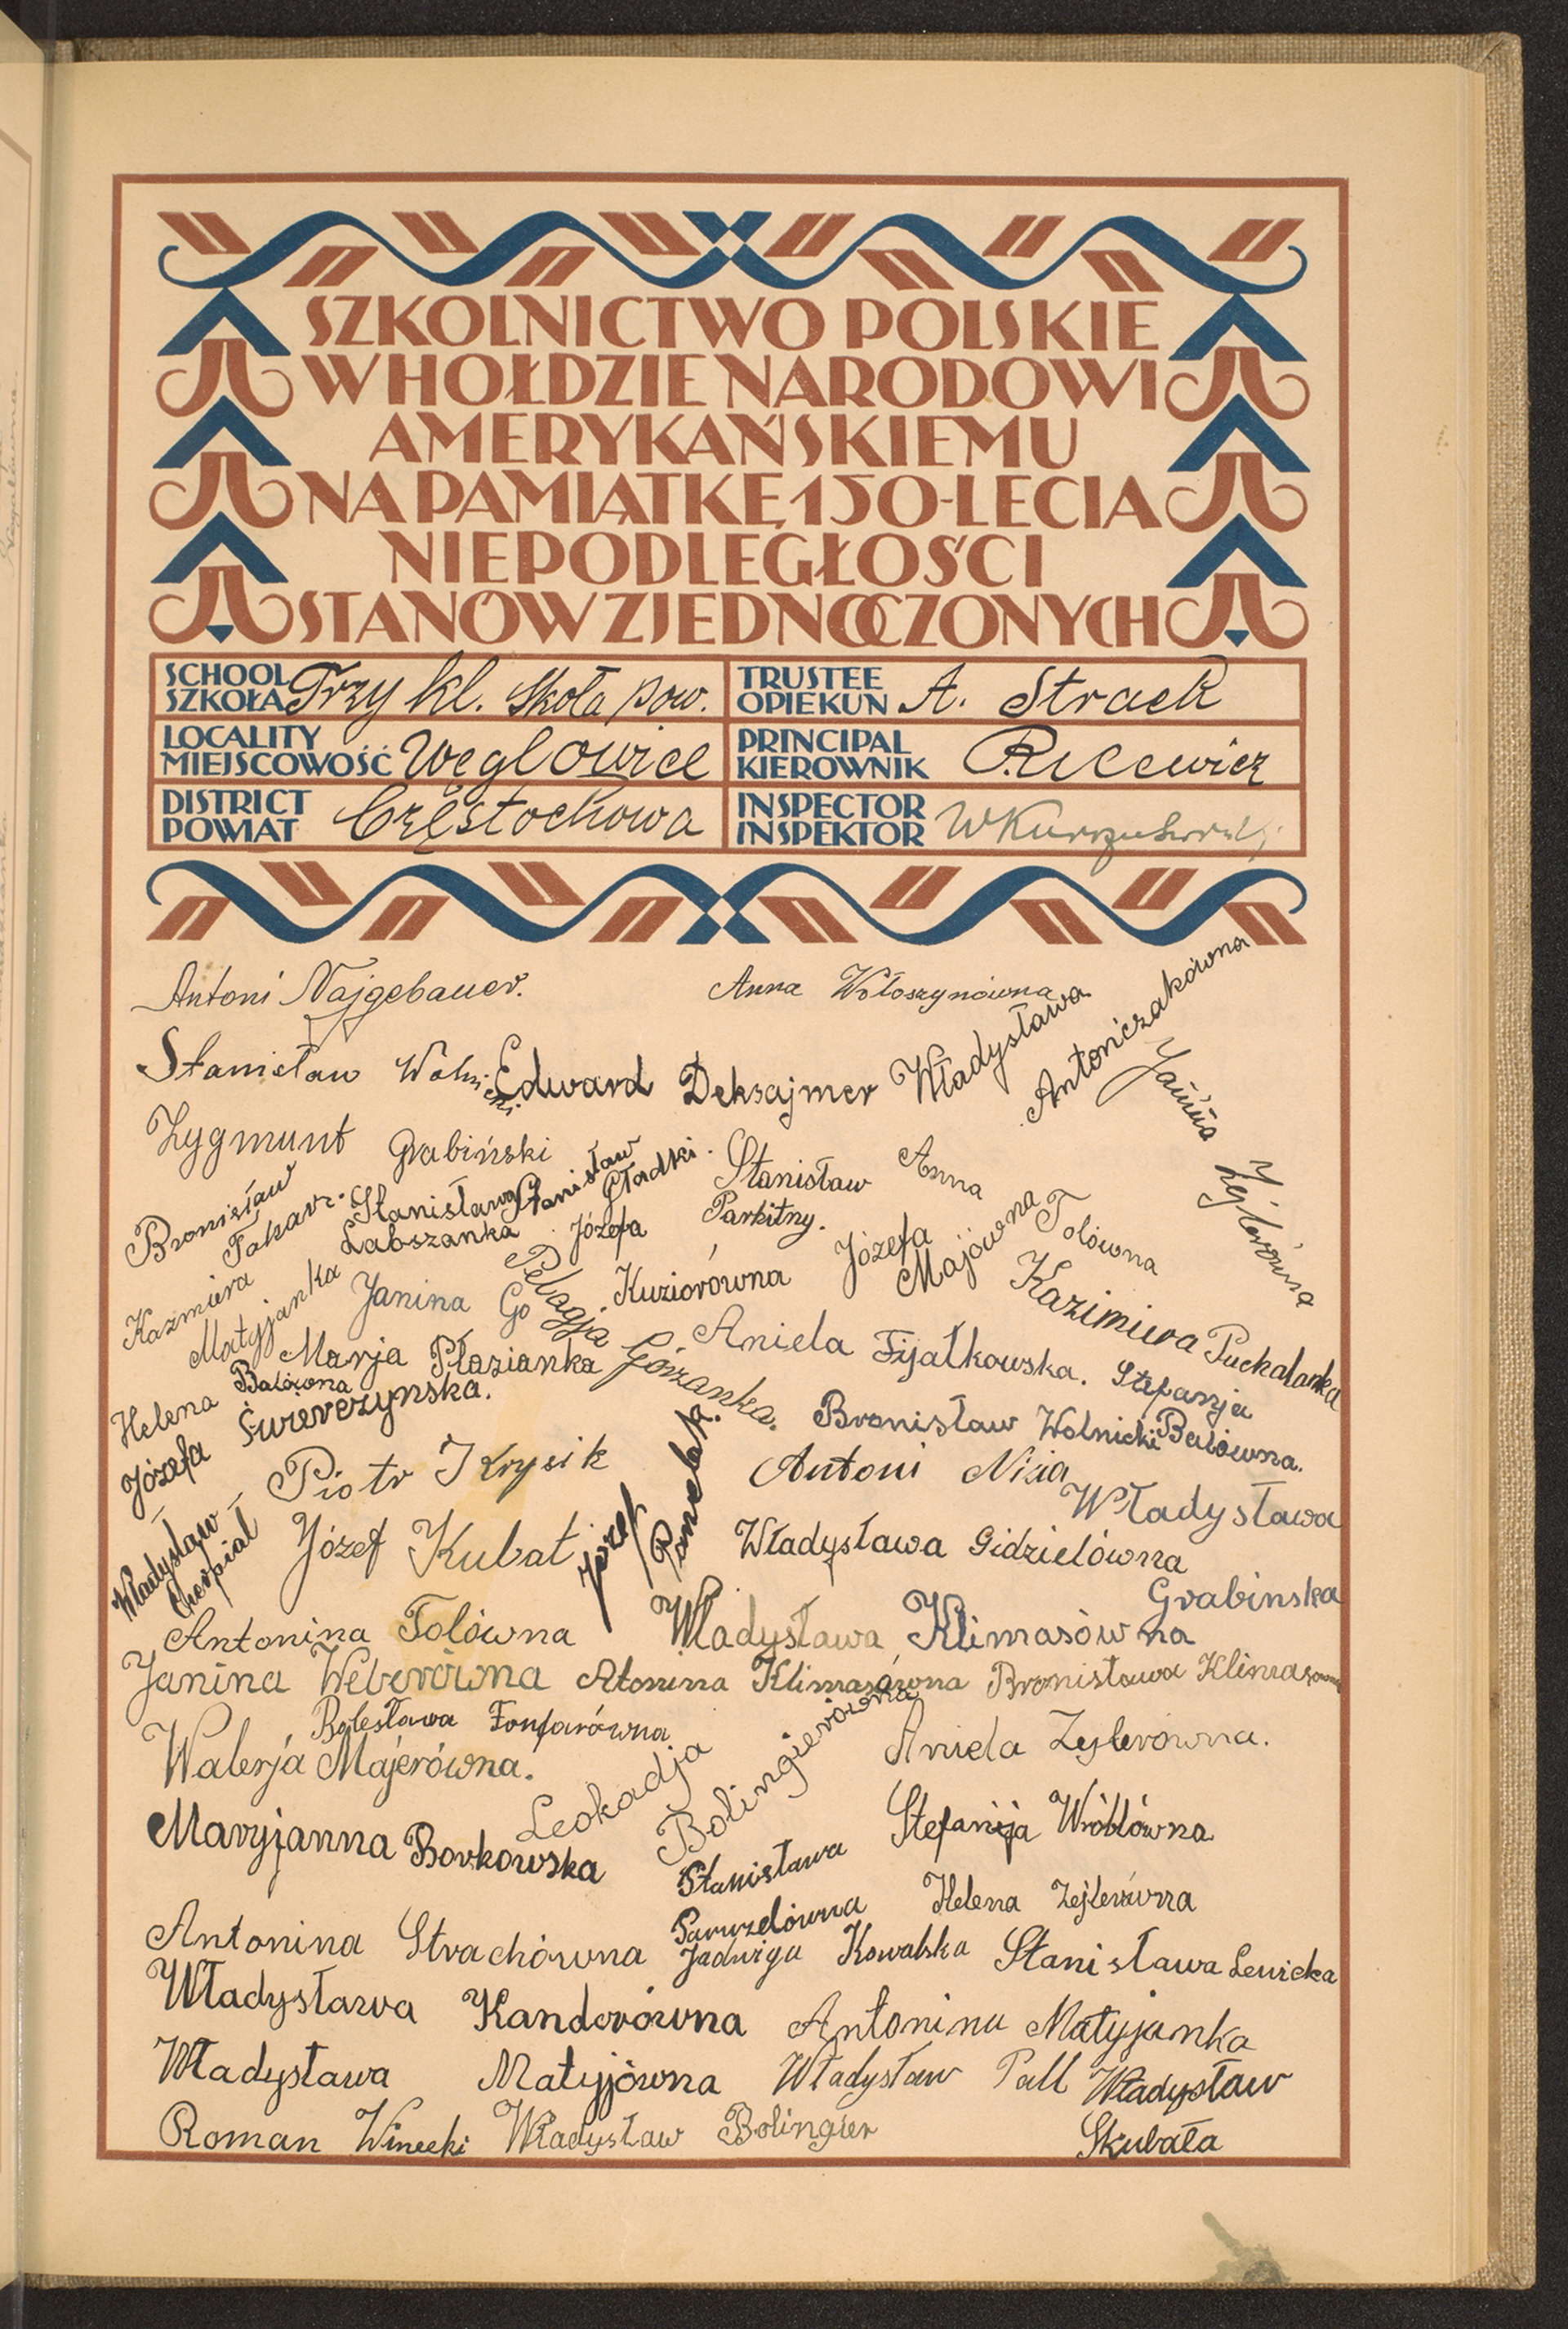 SZKOLNICTWO POLSKIE
W HOŁDZIE NARODOWI
AMERYKAŃSKIEMU
NA PAMIĄTKĘ 150-LECIA
NIEPODLEGŁOŚCI
STANÓW ZJEDNOCZONYCH
SCHOOL SZKOŁA Trzy kl. Skoła pow.
TRUSTEE OPIEKUN A. Strack
LOCALITY MIEJSCOWOŚĆ Węglowice
PRINCIPAL KIEROWNIK
DISTRICT POWIAT Częstochowa
INSPECTOR INSPEKTOR
Antoni Najgebauer.
Anna Wołoszynówna
Stanisław Wolnicki
Edward Deksajmer
Władysława Antończakówna
Janina Zejlerówna
Zygmunt Grabiński
Stanisław Gładki.
Stanisław Parkitny.
Anna Tolówna
Bronisław Fakavr.
Stanisława Labszanka
Józefa Kuziorówna
Józefa Majówna
Kazmiera Matyjanka
Janina Go
Pelagja Górzanka.
Kazimiera Puchalanka
Marja Płazianka
Aniela Fijałkowska.
Stefanja Balówna.
Helena Balówna
Józefa Świerczynska.
Bronisław Wolnicki
Piotr Krysik
Józef Panelak.
Antoni Nizia
Władysława Grabinska
Władysław Cherpiał
Józef Kubat
Władysława Gidzielówna
Antonina Tolówna
Władysława Klimasówna
Janina Weberówna
Atonina Klimasówna
Bronisława Klimasowna
Bolesława Fonfarówna
Walerja Majerówna.
Leokadja Bolingierówna
Aniela Zylerówna.
Maryjanna Borkowska
Stefanija Wróblówna
Stanisława Paruzelówna
Helena Zejlerówna
Antonina Strachówna
Jadwiga Kowalska
Stanisława Lewicka
Władysława Kanderówna
Antonina Matyjanka
Władysława Matyjówna
Władysław Pall
Władysław Skubała
Roman Winecki
Władysław Bolingier